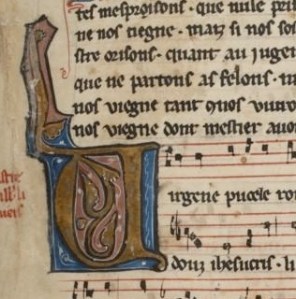 tes mesproisons · que nule pri
ne nos tiegne · mai si nos sos
stre orisons · quant au iugem
que ne partons as felons · m
nos viegne tant qnos viuro
nos viegne dont mestier auo
V
irgene pucele roi
douz ihesucris · li